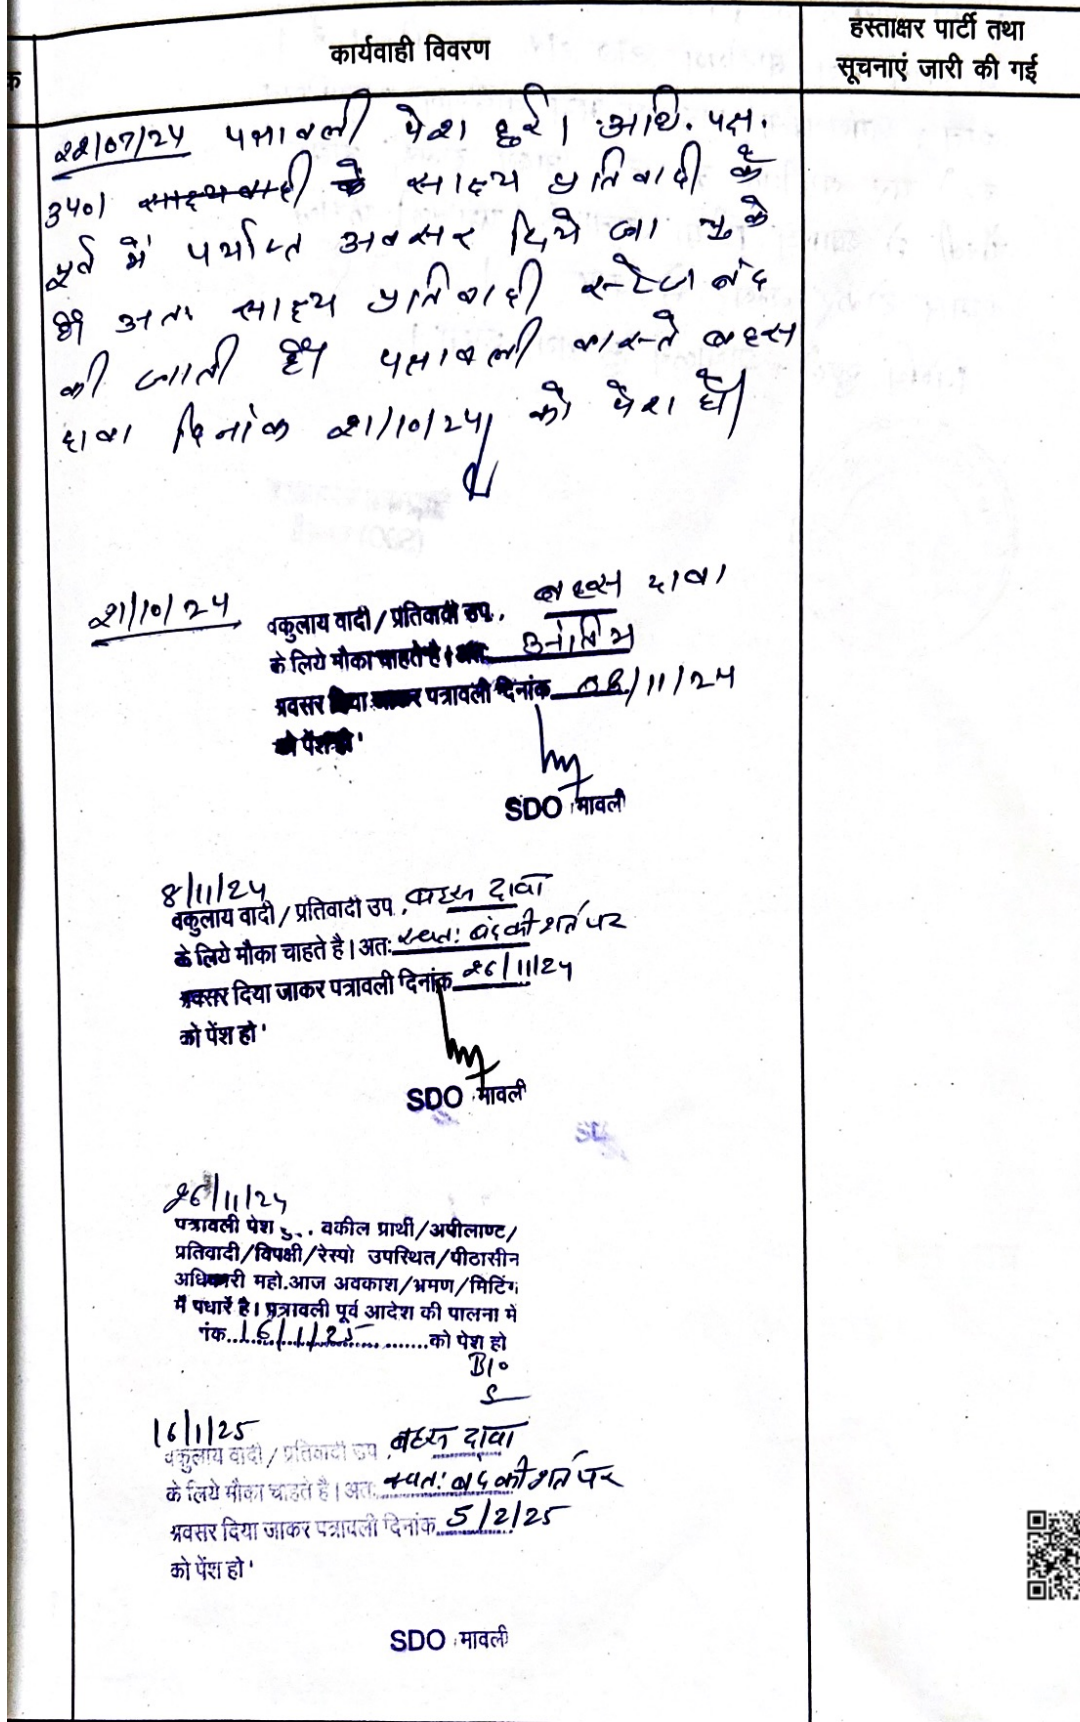 कार्यवाही विवरण
हस्ताक्षर पार्टी तथा
सूचनाएं जारी की गई
क
22/07/24 पत्रावली पेश हुई। अधि. पक्ष.
उप। साक्ष्य वादी के साक्ष्य प्रतिवादी के
पूर्व में पर्याप्त अवसर दिये जा चुके
है अतः साक्ष्य प्रतिवादी स्टेज बंद
की जाती है। पत्रावली वास्ते बहस
दावा दिनांक 21/10/24 को पेश हो।
21/10/24
बहस दावा
वकुलाय वादी/प्रतिवादी उप.
के लिये मौका चाहते है। अतः
अवसर दिया जाकर पत्रावली दिनांक 08/11/24
को पेंश हो
SDO मावली
8/11/24
वकुलाय वादी/प्रतिवादी उप. बहस दावा
के लिये मौका चाहते है। अतः स्वतः बंद की शर्त पर
अवसर दिया जाकर पत्रावली दिनांक 26/11/24
को पेंश हो
SDO मावली
26/11/24
पत्रावली पेश हु.. वकील प्रार्थी/अपीलाण्ट/
प्रतिवादी/विपक्षी/रेस्पो उपस्थित/पीठासीन
अधिकारी महो.आज अवकाश/भ्रमण/मिटिंग
में पधारें है। पत्रावली पूर्व आदेश की पालना में
नंक..16/1/25......को पेश हो
B/o
16/1/25
वकुलाय वादी/प्रतिवादी उप. बहस दावा
के लिये मौका चाहते है। अतः स्वतः बंद की शर्त पर
अवसर दिया जाकर पत्रावली दिनांक 5/2/25
को पेंश हो
SDO मावली